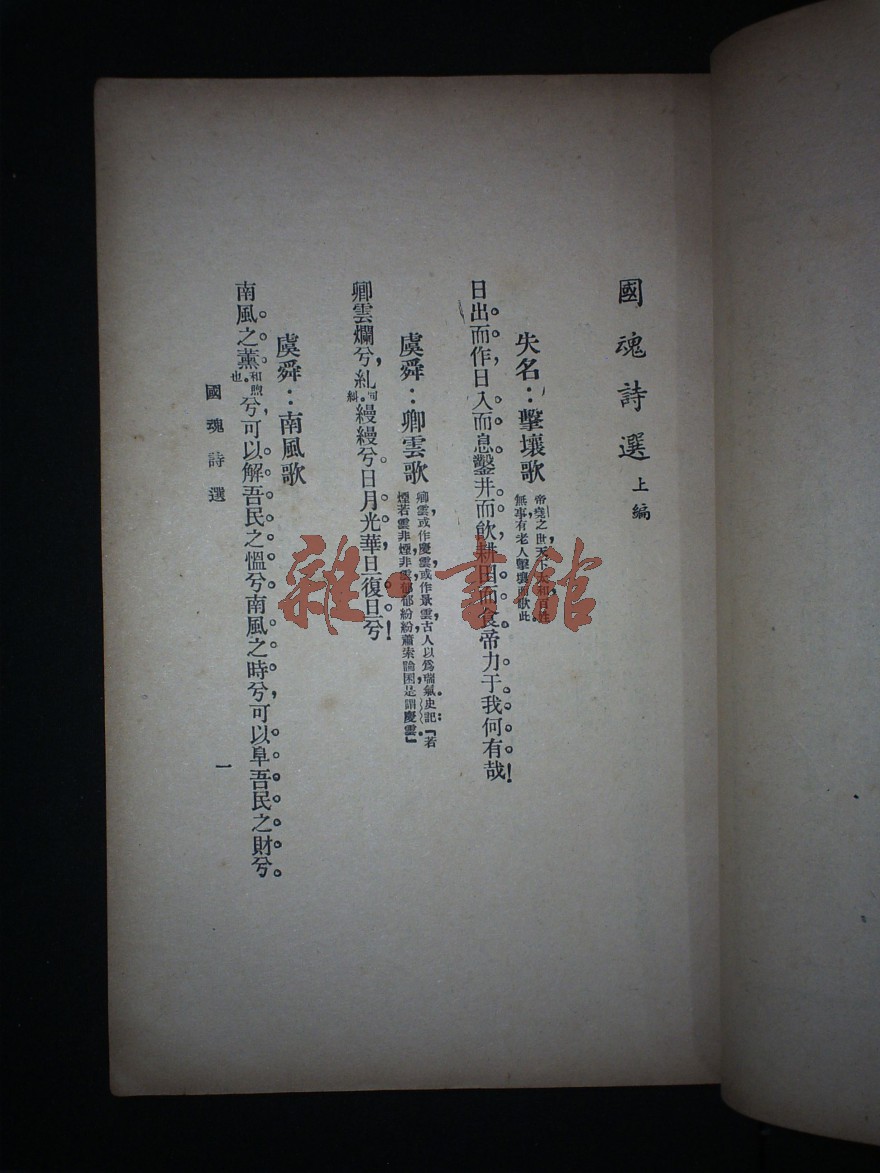 國魂詩選 上編
失名：擊壤歌
帝堯之世，天下太和，百姓
無事，有老人擊壤而歌此。
日出而作，日入而息。鑿井而飲，耕田而食。帝力于我何有哉！
虞舜：卿雲歌
卿雲，或作慶雲，或作景雲，古人以爲瑞氣。史記：「若
煙非煙，若雲非雲，郁郁紛紛，蕭索輪囷，是謂慶雲。」
卿雲爛兮，糺同糾。縵縵兮。日月光華，旦復旦兮！
虞舜：南風歌
南風之薰和煦也。兮，可以解吾民之慍兮。南風之時兮，可以阜吾民之財兮。
國魂詩選
一
雜·書館